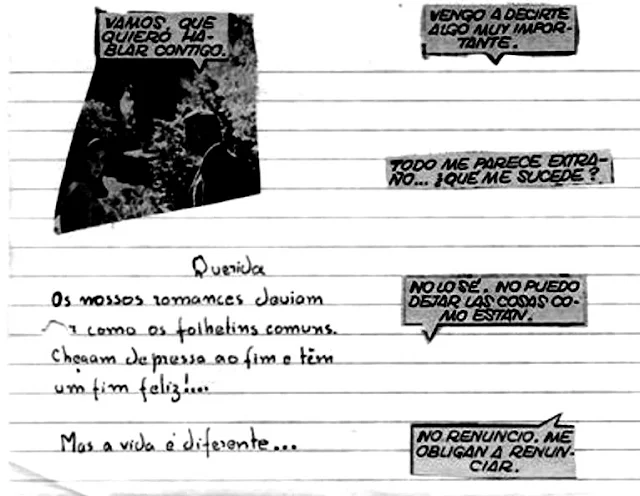 VAMOS QUE
QUIERO HA-
BLAR CONTIGO.
VENGO A DECIRTE
ALGO MUY IMPOR-
TANTE.
TODO ME PARECE EXTRA-
ÑO... ¿QUÉ ME SUCEDE?
Querida
Os nossos romances deviam
como os folhetins comuns.
Chegam depressa ao fim e têm
um fim feliz!...
Mas a vida é diferente...
NO LO SÉ. NO PUEDO
DEJAR LAS COSAS CO-
MO ESTÁN.
NO RENUNCIO. ME
OBLIGAN A RENUN-
CIAR.